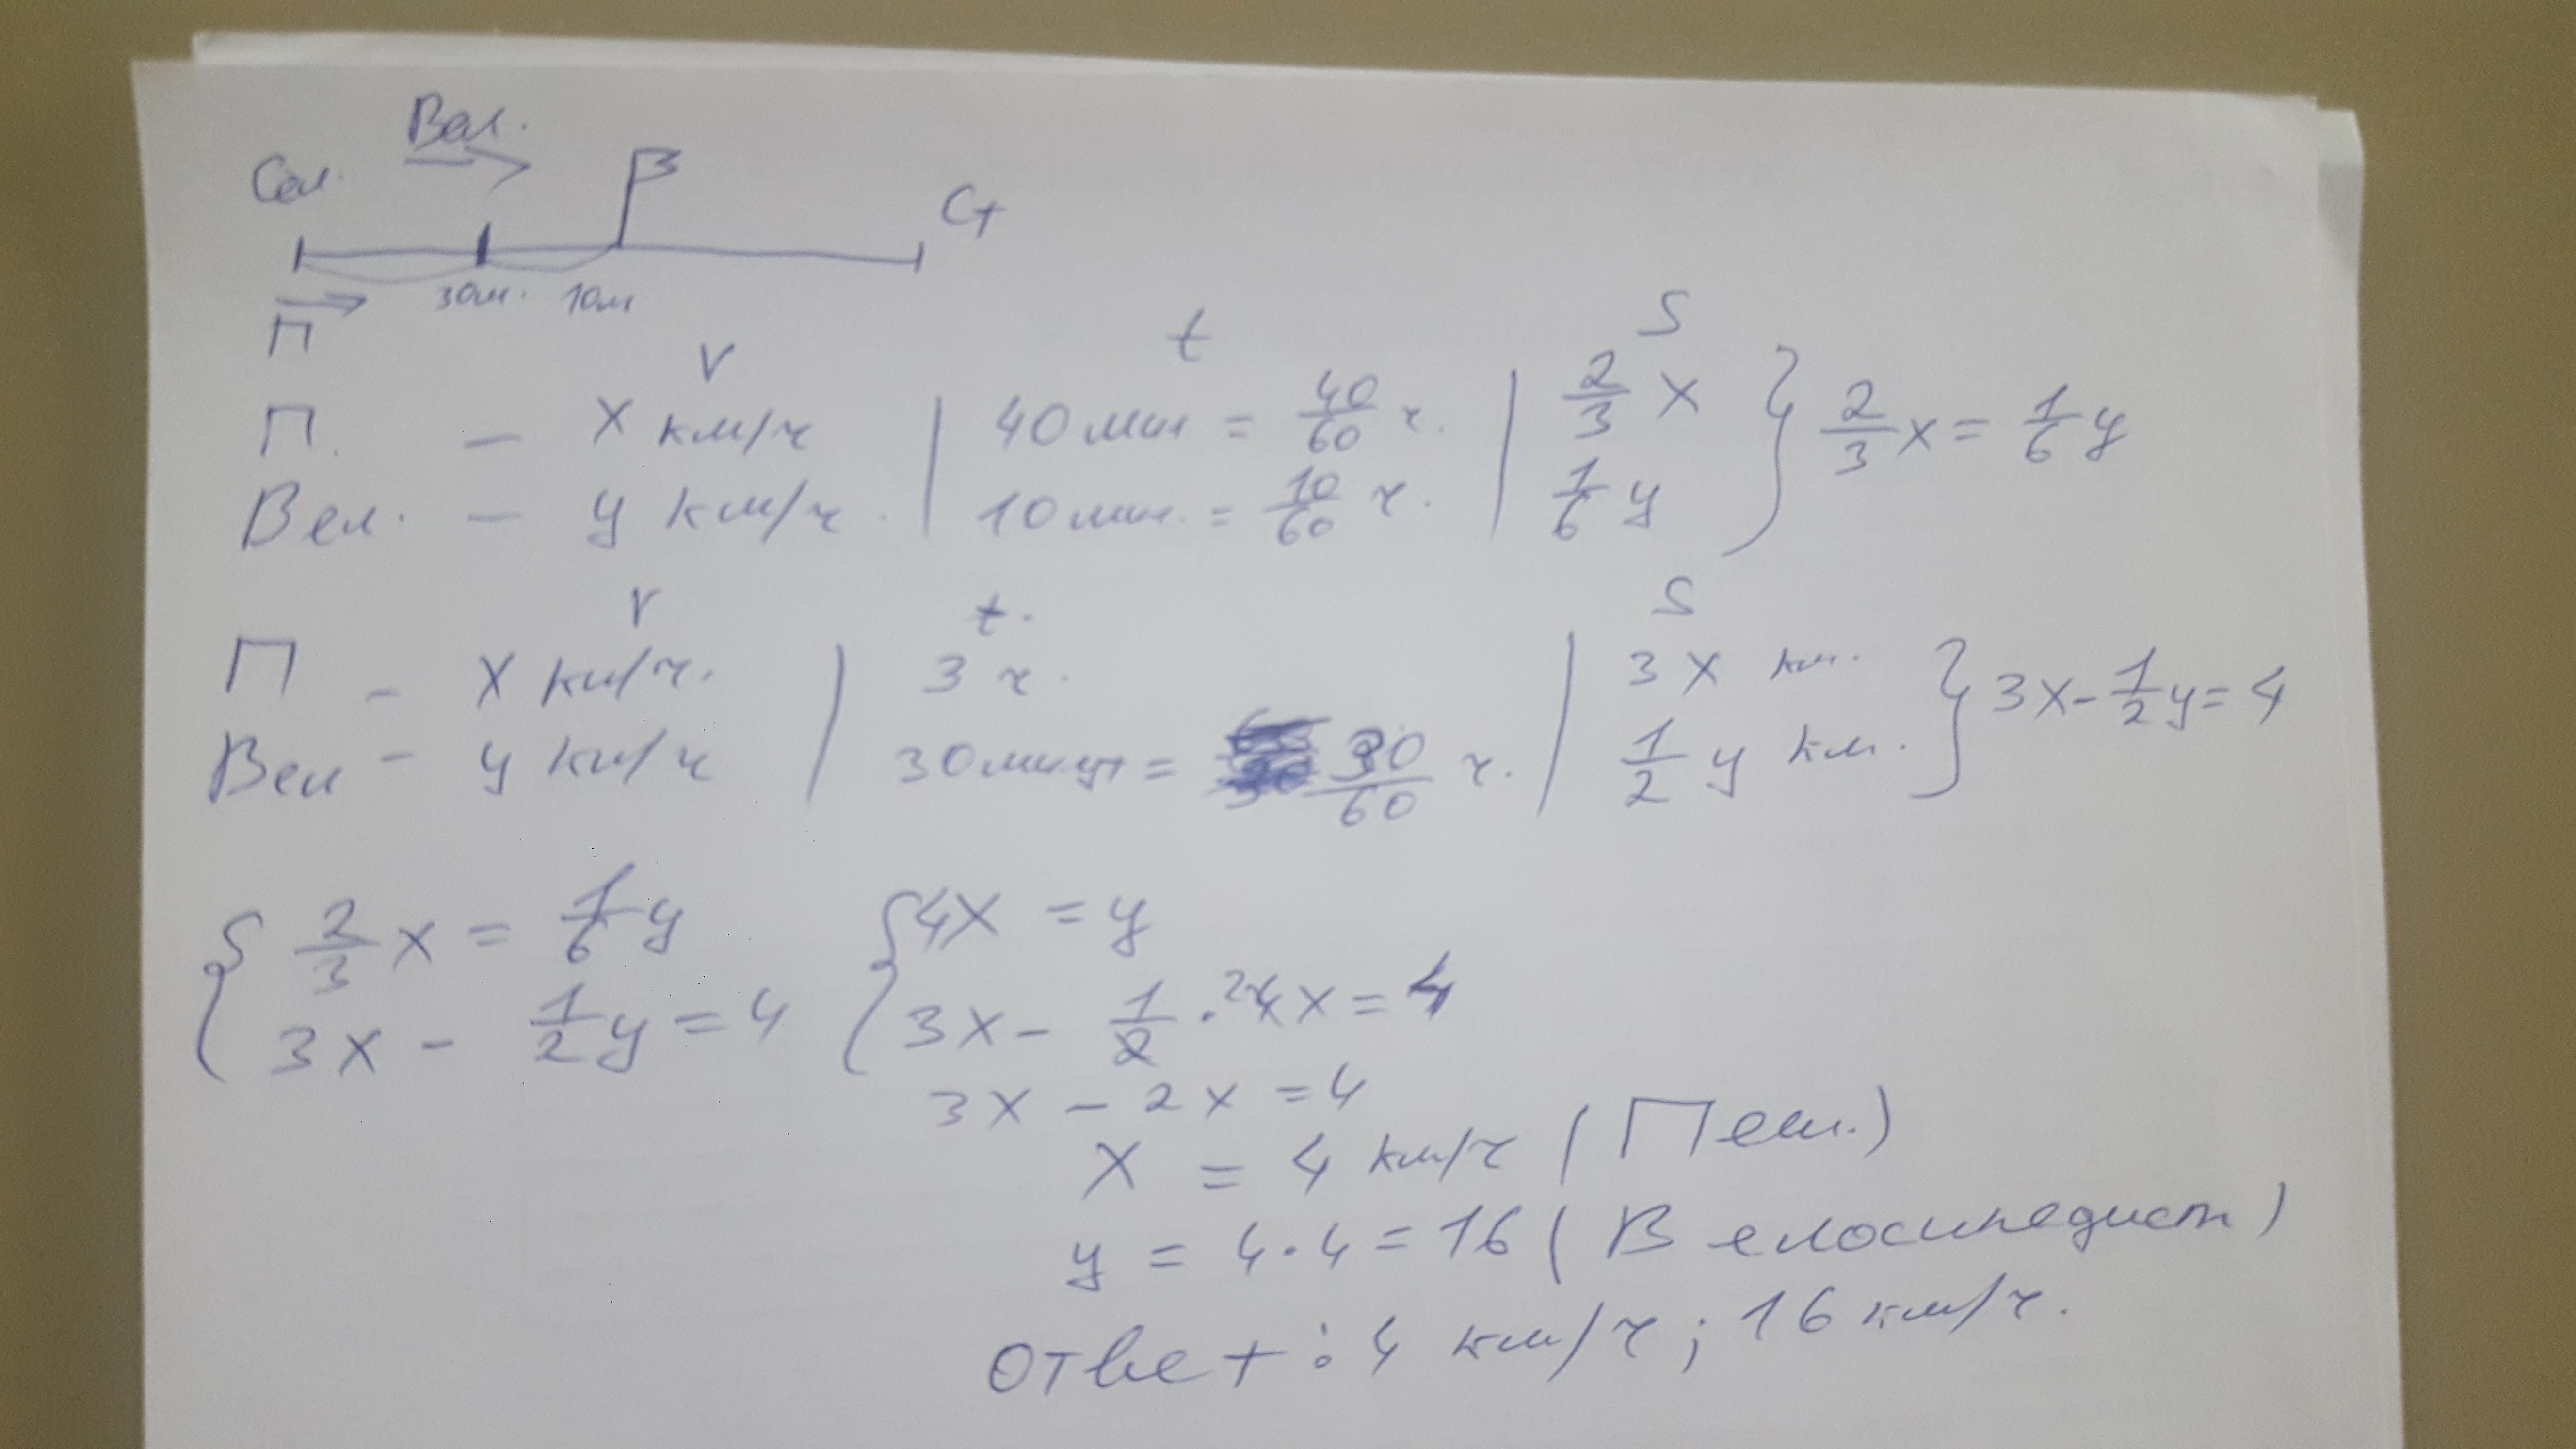 Вел.
Сел.
Ст
30м. 10м
П
V t S
П. – x км/ч | 40 мин = 40/60 ч. | 2/3 x } 2/3 x = 1/6 y
Вел. – y км/ч. | 10 мин. = 10/60 ч. | 1/6 y
V t. S
П – x км/ч. | 3 ч. | 3x км. } 3x – 1/2 y = 4
Вел – y км/ч | 30 минут = 30/60 ч. | 1/2 y км.
{ 2/3 x = 1/6 y { 4x = y
3x – 1/2 y = 4 3x – 1/2 · ²4x = 4
3x – 2x = 4
x = 4 км/ч (Пеш.)
y = 4·4 = 16 (Велосипедист)
Ответ: 4 км/ч; 16 км/ч.